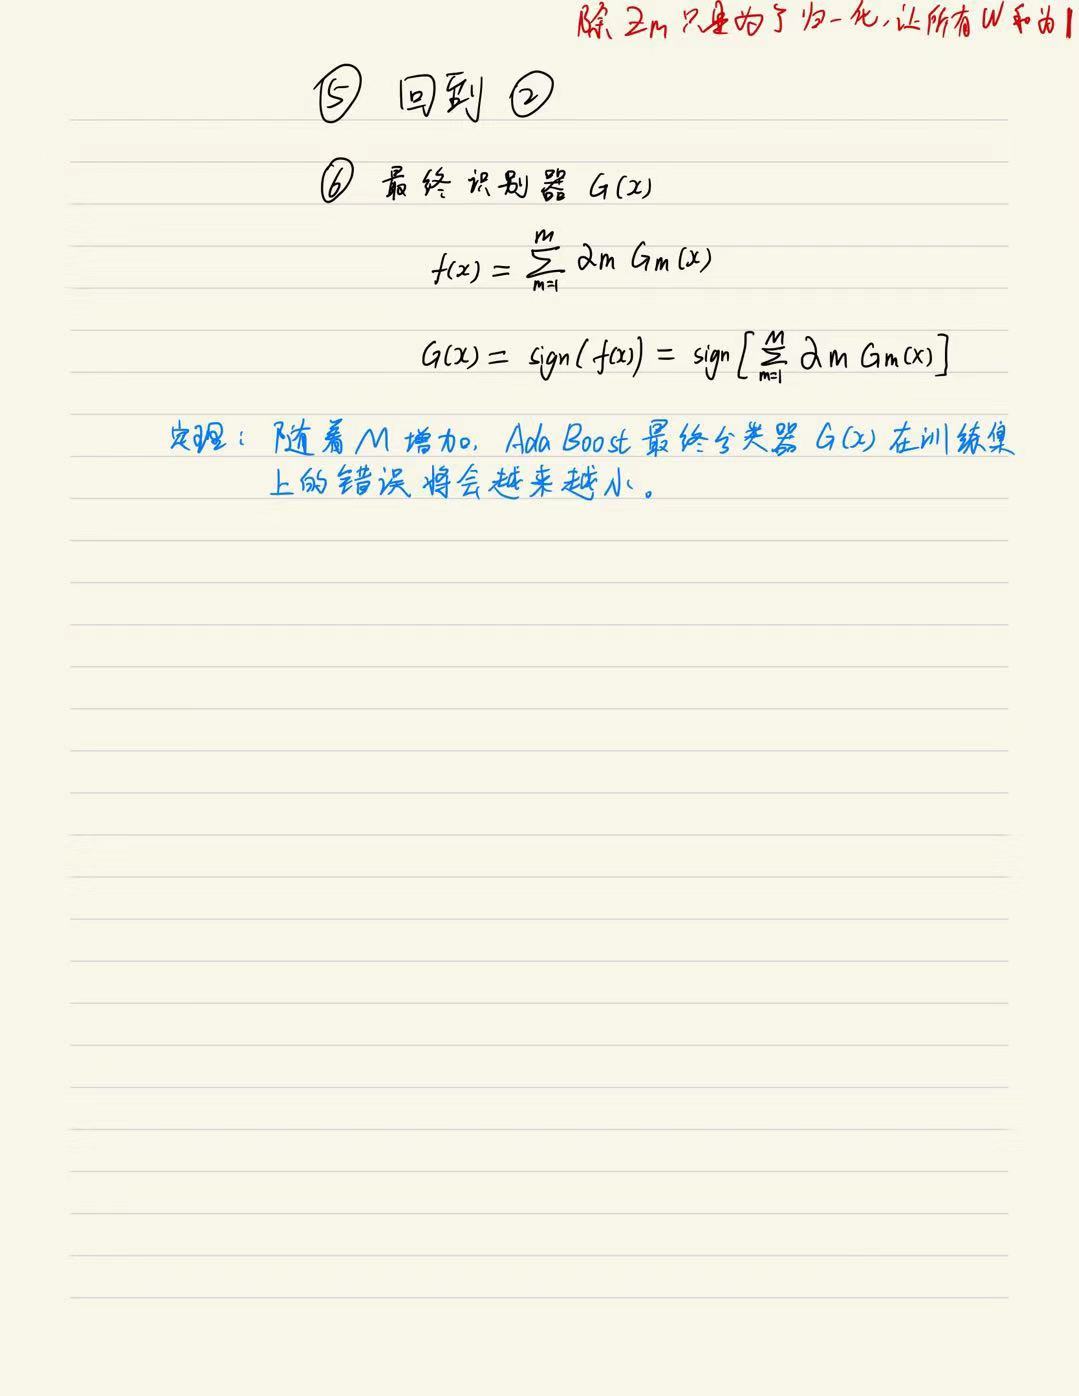 除 Zm 只是为了归一化,让所有 W 和为1
⑤ 回到 ②
⑥ 最终识别器 G(x)
f(x) = ∑_{m=1}^{M} αm Gm(x)
G(x) = sign(f(x)) = sign[∑_{m=1}^{M} αm Gm(x)]
定理: 随着 M 增加, AdaBoost 最终分类器 G(x) 在训练集
上的错误将会越来越小。